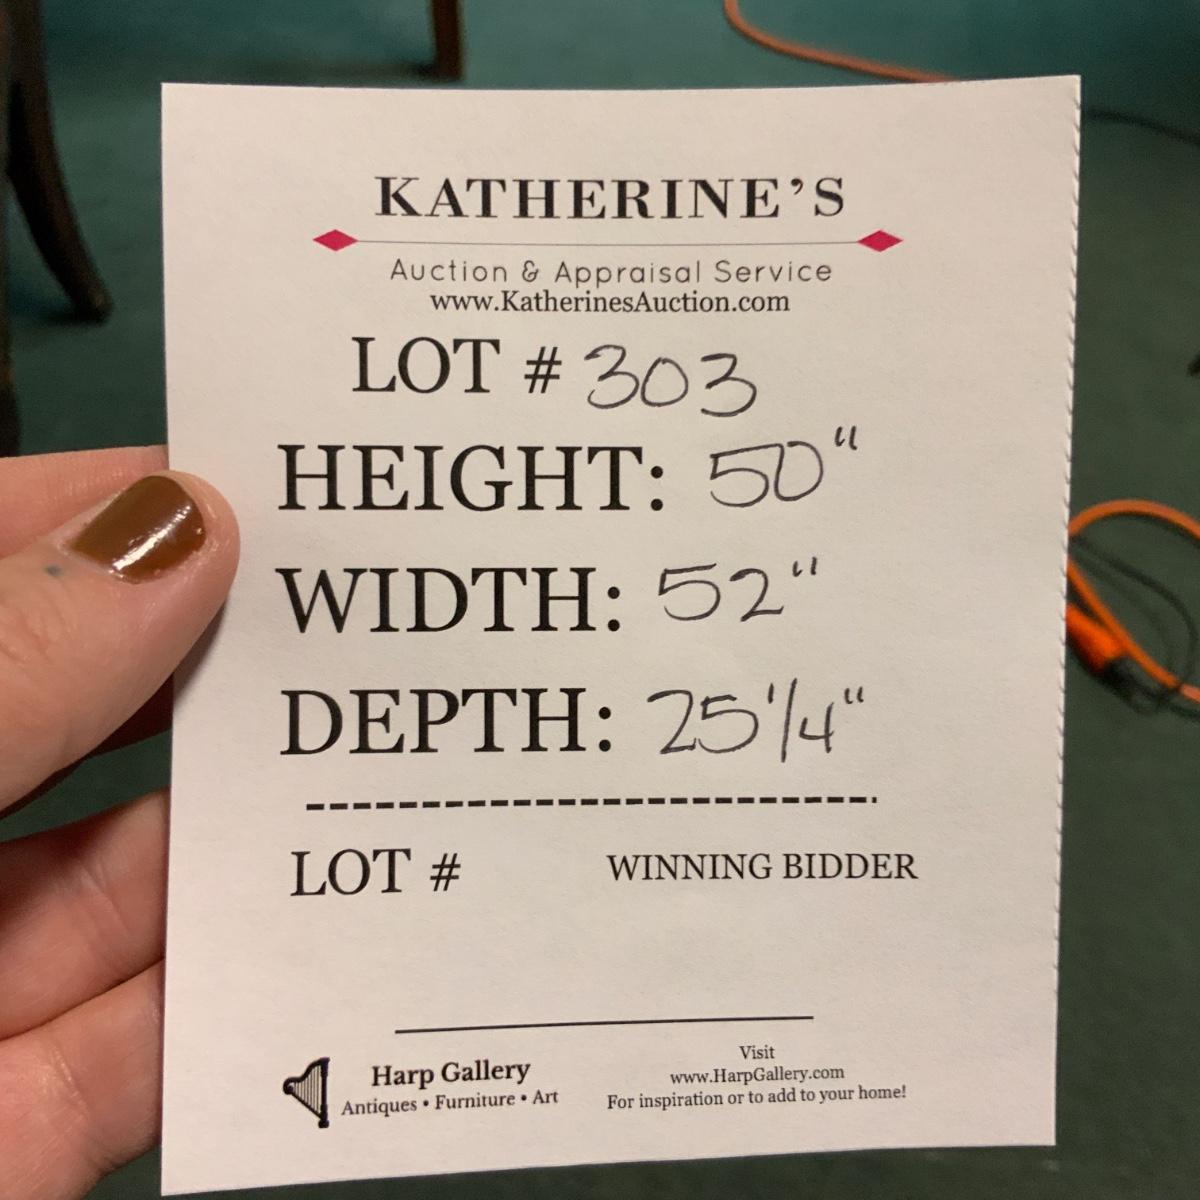 KATHERINE'S
Auction & Appraisal Service
www.KatherinesAuction.com
LOT # 303
HEIGHT: 50"
WIDTH: 52"
DEPTH: 25 1/4"
LOT # WINNING BIDDER
Harp Gallery
Antiques • Furniture • Art
Visit
www.HarpGallery.com
For inspiration or to add to your home!